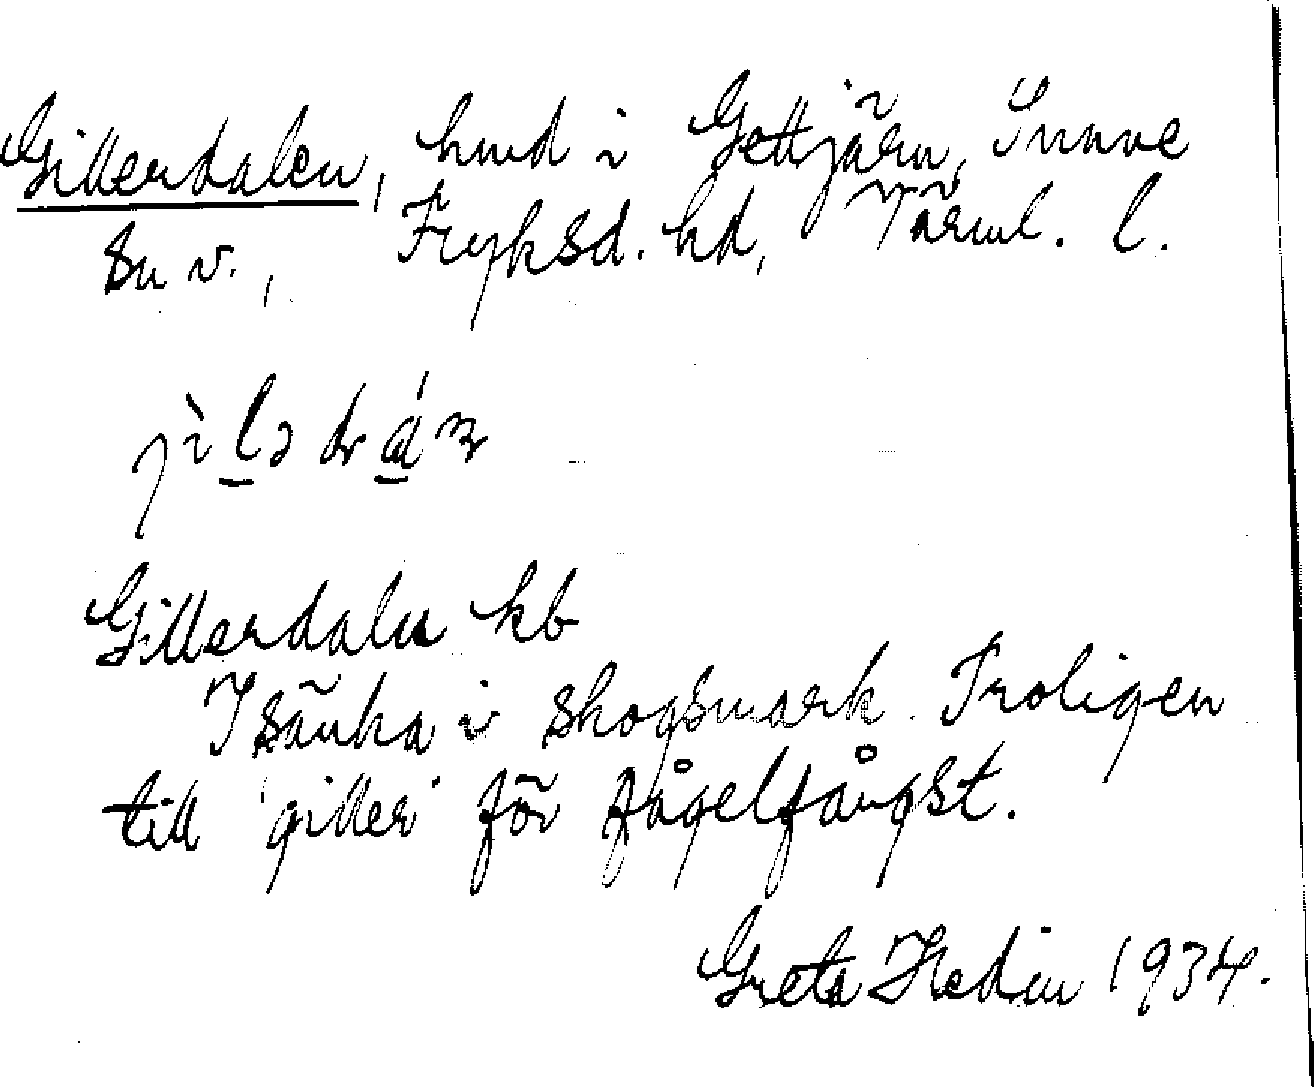 Gillerdalen, hmd i Gettjärn, Sunne
sn v., Fryksd. hd, Värml. l.
Gillerdalen kb
I sänka i skogsmark. Troligen
till 'giller' för fågelfångst.
Greta Hedin 1934.